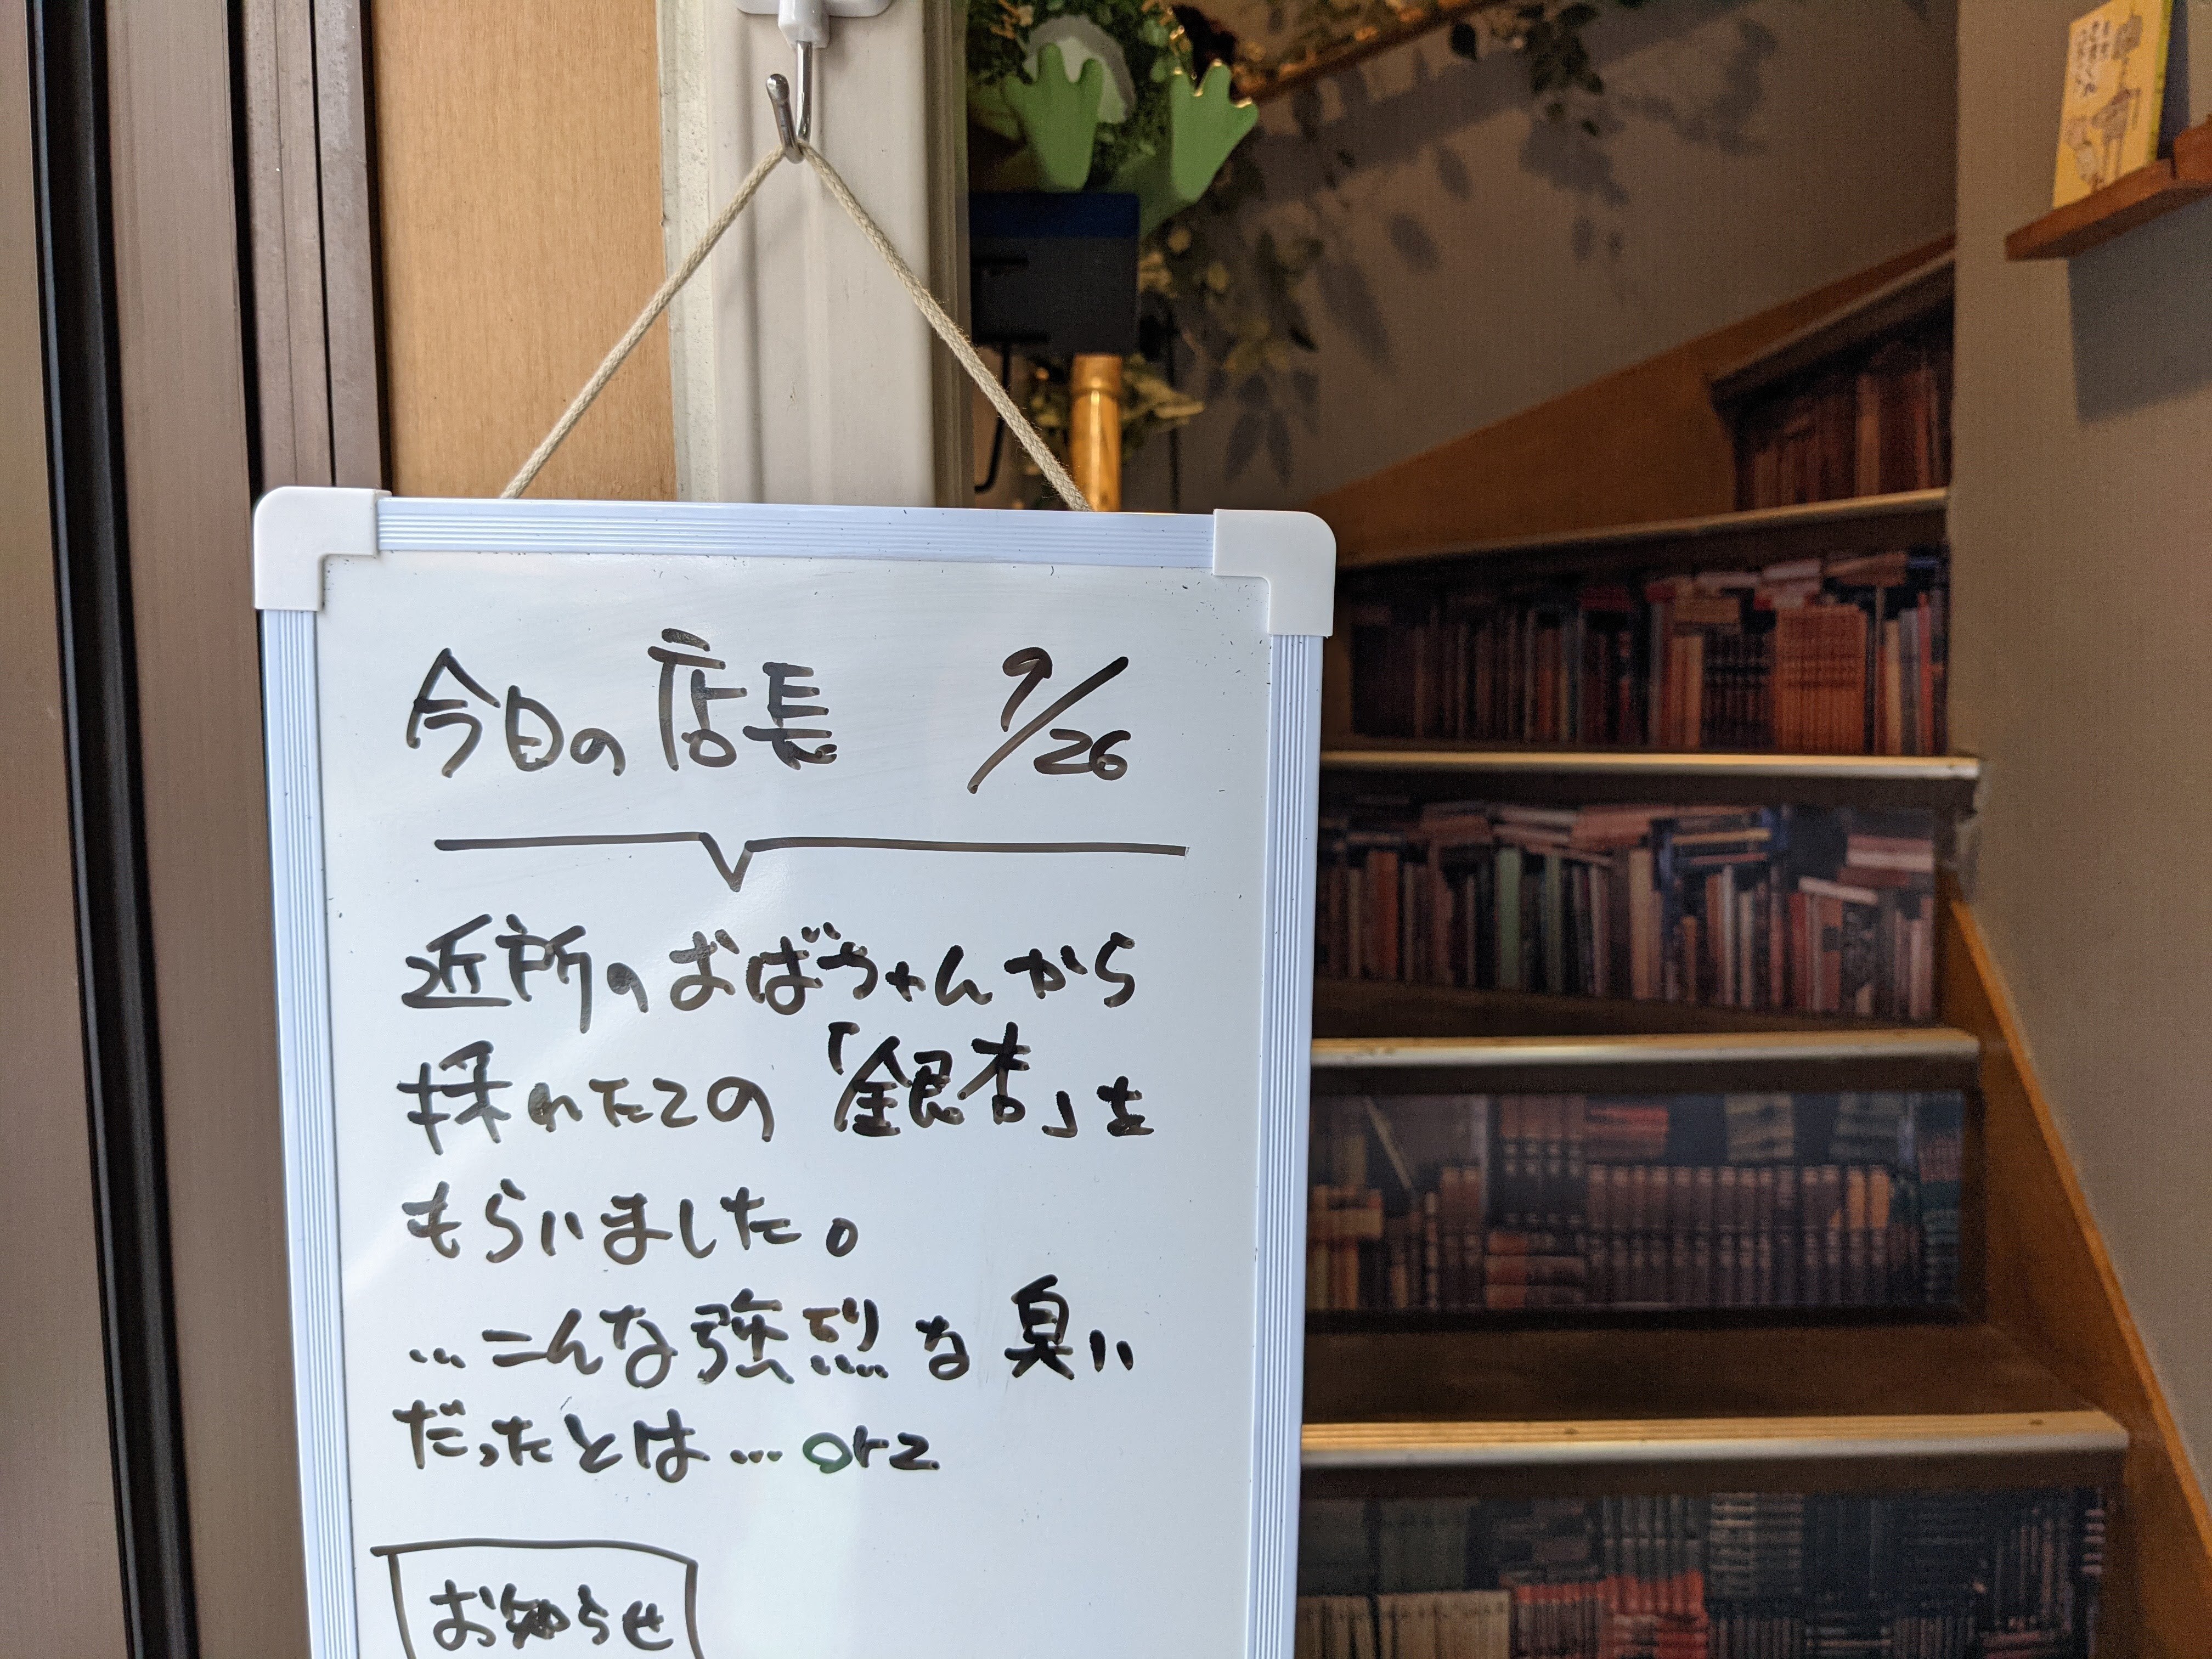 今日の店長 9/26
近所のおばちゃんから
採れたての「銀杏」を
もらいました。
…こんな強烈な臭い
だったとは…orz
お知らせ